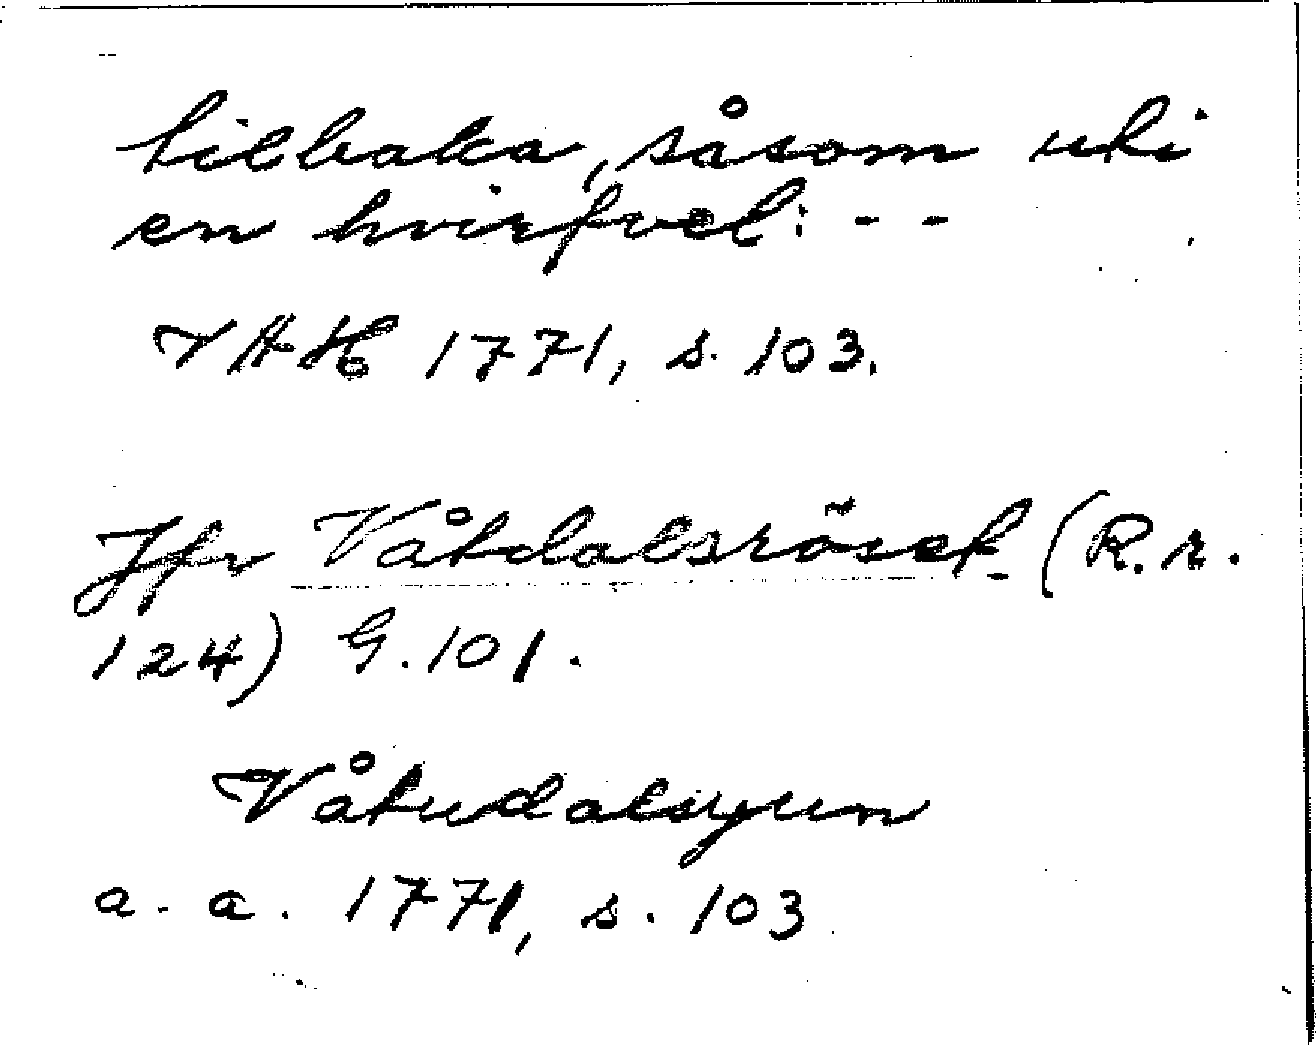 tilbaka, såsom uti
en hvirfvel: --
VAH 1771, s. 103.
Jfr Våtdalsröset (R.r.
124) G. 101.
Våtudalsgun
a. a. 1771, s. 103